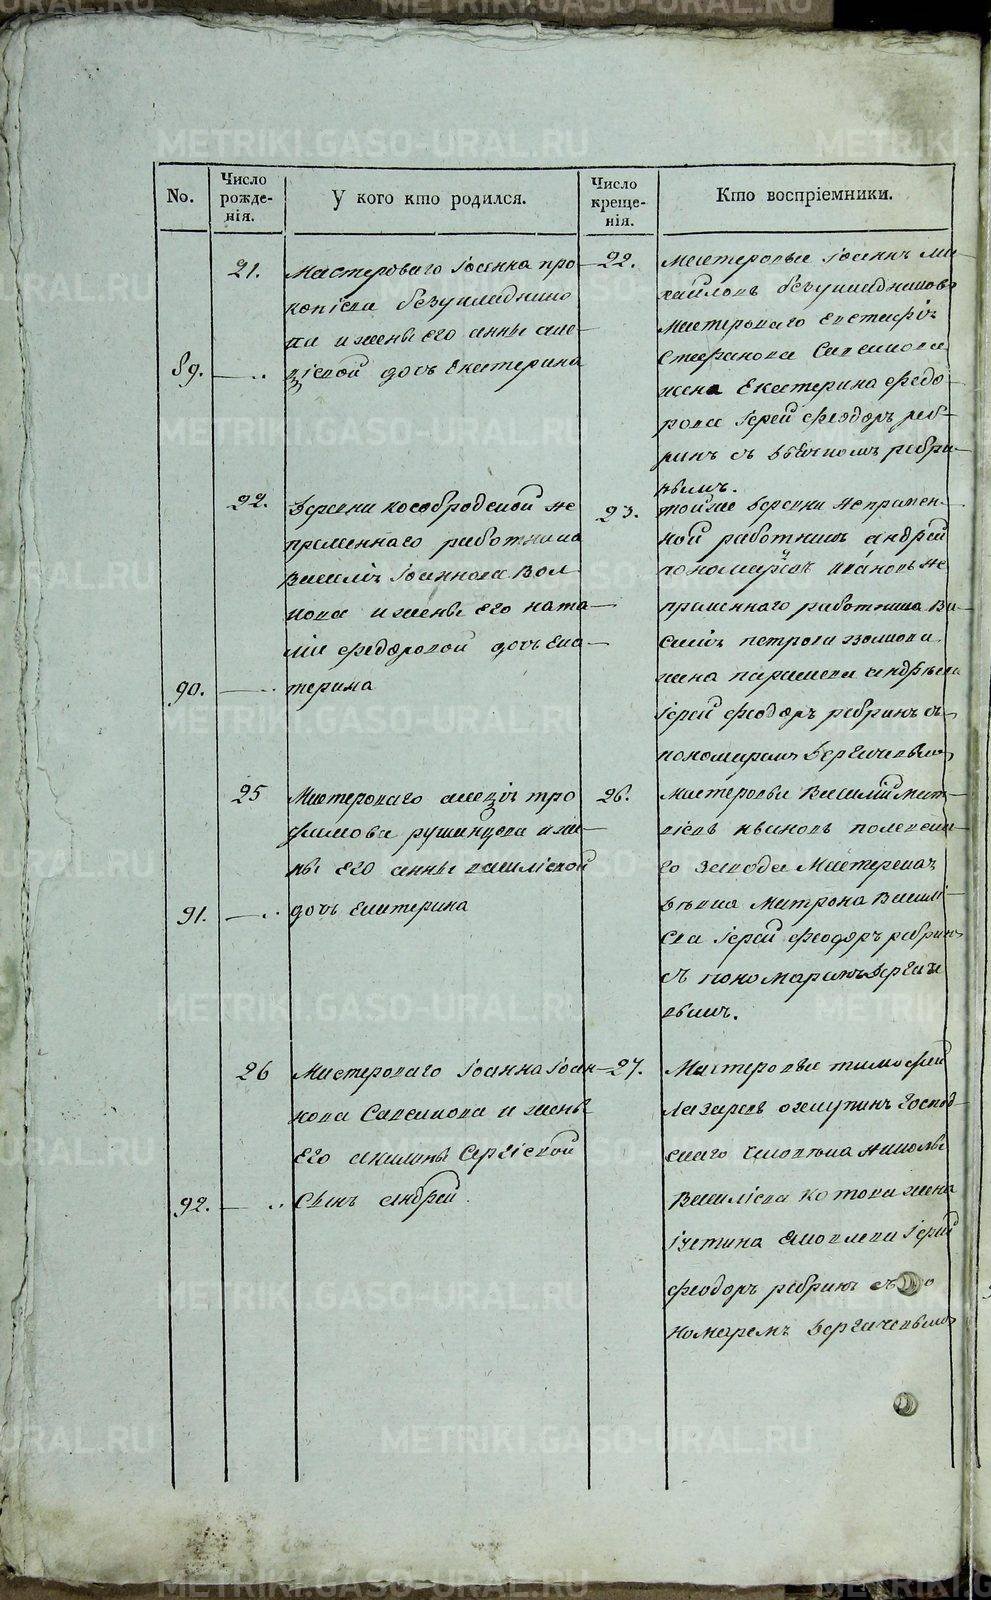 No.
Число рожденія.
У кого кто родился.
Число крещенія.
Кто воспріемники.
21.
Мастероваго Іоанна про-
копіева безукладнико
ва и жены его анны але-
89.
ѯіевой дочь Екатерина
22.
Мастеровые Іоаннъ ми-
хайловъ безукладниковъ
мастероваго Евстафія
Стефанова Савелкова
жена Екатерина федо-
рова Іерей феодоръ реб-
ринъ съ дьячкомъ ребри-
нымъ.
22.
Деревни кособродской не
пременнаго работника
Василія Іоаннова Вол
кова и жены его ната-
ліи федоровой дочь Ека-
90.
терина
23.
тойже деревни непремен-
ной работникъ андрей
пономаревъ ивановъ не
пременнаго работника Ва-
силія петрова волкова
жена параскева андрѣева
Іерей феодоръ ребринъ съ
пономаремъ
25
Мастероваго алеѯія тро
фимова рушинцова и же-
ны его анны василіевой
91.
дочь Екатерина
26.
мастеровые Василій мат-
віевъ ивановъ полевска-
го завода Мастерская
дѣвка Матрона Василі-
ева Іерей феодоръ ребринъ
съ пономаремъ
вымъ.
26
Мастероваго Іоанна Іоан-
нова Савелкова и жены
его акилины Сергіевой
92.
Сынъ андрей.
27.
Мастеровые тимофей
Лазаревъ господ-
скаго человѣка николы
Василіева котова жена
Іустина Яковлева Іерей
феодоръ ребринъ съ по
номаремъ
METRIKI.GASO-URAL.RU